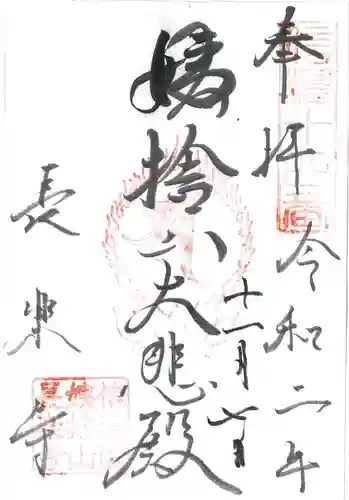 奉拝
令和二年
十一月七日
姨捨山大悲殿
長楽寺